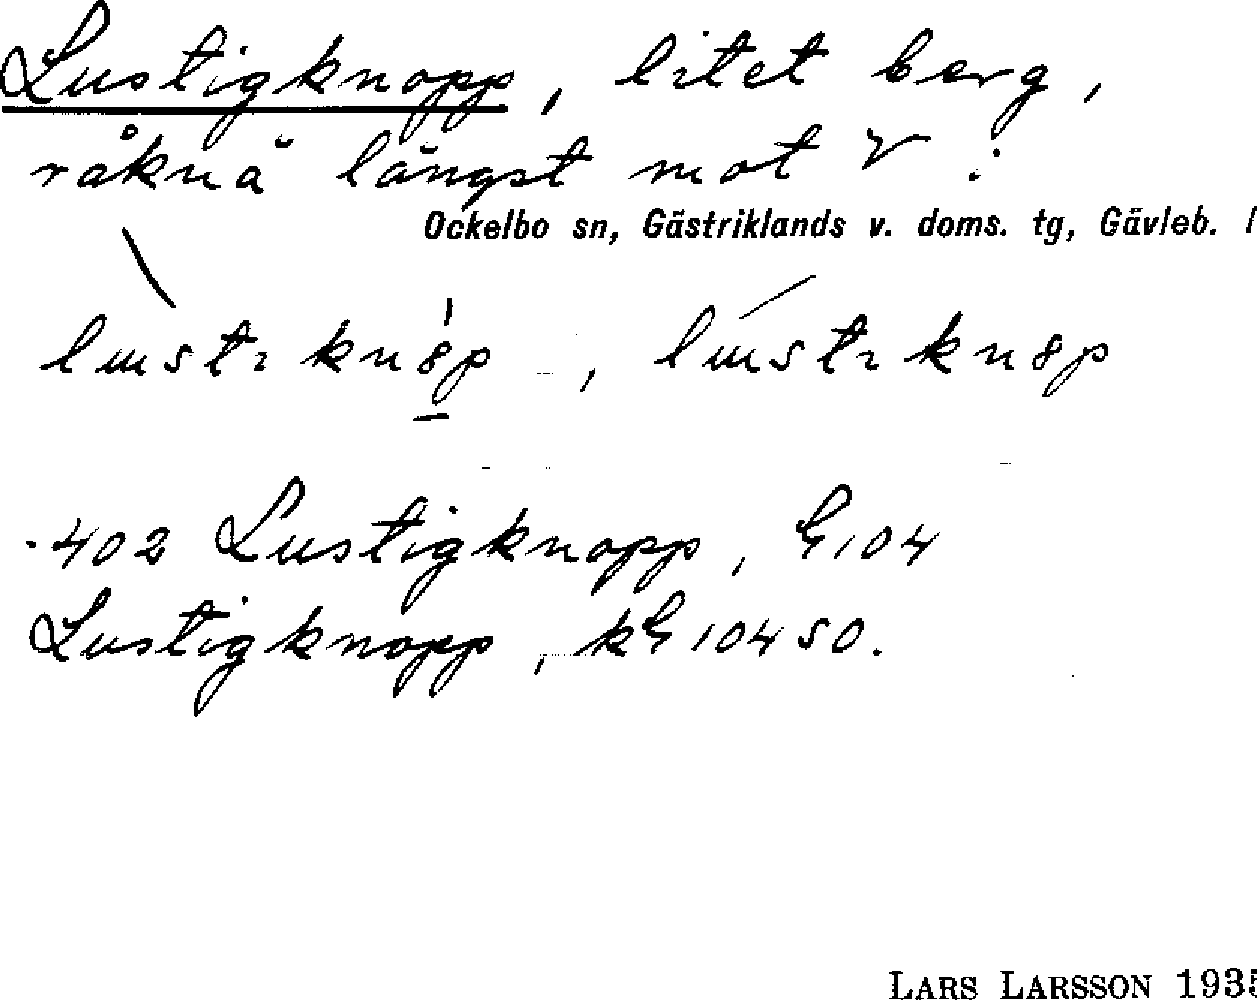 Lustigknopp, litet berg,
råknä längst mot V i
Ockelbo sn, Gästriklands v. doms. tg, Gävleb. l
lustıknȣp, lustıknȣp
402 Lustigknopp, G104
Lustigknopp, kG 10450.
LARS LARSSON 193